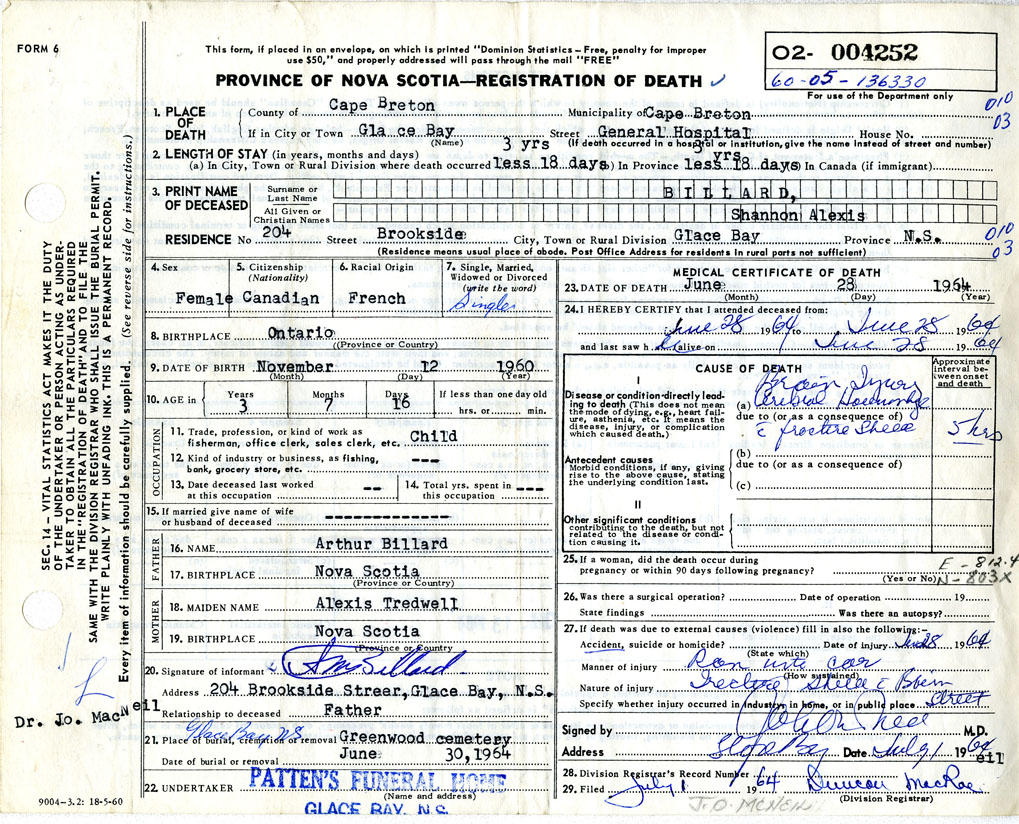 FORM 6
This form, if placed in an envelope, on which is printed "Dominion Statistics – Free, penalty for improper
use $50," and properly addressed will pass through the mail "FREE"
PROVINCE OF NOVA SCOTIA—REGISTRATION OF DEATH
02- 004252
60-05-136330
For use of the Department only
010
03
1. PLACE OF DEATH
County of Cape Breton Municipality of Cape Breton
If in City or Town Gla ce Bay Street General Hospital House No.
(Name) (If death occurred in a hospital or institution, give the name instead of street and number)
2. LENGTH OF STAY (in years, months and days)
3 yrs 3 yrs
(a) In City, Town or Rural Division where death occurred less 18 days (b) In Province less 18 days (c) In Canada (if immigrant)
3. PRINT NAME OF DECEASED
Surname or Last Name BILLARD,
All Given or Christian Names Shannon Alexis
RESIDENCE No 204 Street Brookside City, Town or Rural Division Glace Bay Province N.S.
010
03
(Residence means usual place of abode. Post Office Address for residents in rural parts not sufficient)
4. Sex Female
5. Citizenship (Nationality) Canadian
6. Racial Origin French
7. Single, Married, Widowed or Divorced (write the word) Single
8. BIRTHPLACE Ontario
(Province or Country)
9. DATE OF BIRTH November 12 1960
(Month) (Day) (Year)
10. AGE in Years 3 Months 7 Days 16 If less than one day old hrs. or min.
OCCUPATION
11. Trade, profession, or kind of work as
fisherman, office clerk, sales clerk, etc. Child
12. Kind of industry or business, as fishing,
bank, grocery store, etc. ---
13. Date deceased last worked
at this occupation --
14. Total yrs. spent in
this occupation ---
15. If married give name of wife
or husband of deceased ---------------
FATHER
16. NAME Arthur Billard
17. BIRTHPLACE Nova Scotia
(Province or Country)
MOTHER
18. MAIDEN NAME Alexis Tredwell
19. BIRTHPLACE Nova Scotia
(Province or Country)
20. Signature of informant Billard
Address 204 Brookside Streer, Glace Bay, N.S.
Relationship to deceased Father
Glace Bay N.S.
21. Place of burial, cremation or removal Greenwood cemetery
Date of burial or removal June 30, 1964
22. UNDERTAKER PATTEN'S FUNERAL HOME
(Name and address)
GLACE BAY, N.S.
9004–3.2: 18-5-60
MEDICAL CERTIFICATE OF DEATH
23. DATE OF DEATH June 28 1964
(Month) (Day) (Year)
24. I HEREBY CERTIFY that I attended deceased from:
June 28 1964 to June 28 1964
and last saw h alive on June 28 1964
CAUSE OF DEATH
Approximate interval between onset and death
I
Disease or condition directly leading to death (This does not mean the mode of dying, e.g., heart failure, asthenia, etc. It means the disease, injury, or complication which caused death.)
Brain Injury
(a) Cerebral Hemorrhage
due to (or as a consequence of)
5 hrs
(b)
due to (or as a consequence of)
(c)
Antecedent causes
Morbid conditions, if any, giving rise to the above cause, stating the underlying condition last.
II
Other significant conditions
contributing to the death, but not related to the disease or condition causing it.
25. If a woman, did the death occur during
pregnancy or within 90 days following pregnancy?
(Yes or No)
E-812.4
N-803X
26. Was there a surgical operation? Date of operation 19
State findings Was there an autopsy?
27. If death was due to external causes (violence) fill in also the following:–
Accident, suicide or homicide? Date of injury June 28 1964
(State which)
Manner of injury Ran into car
(How sustained)
Nature of injury
Specify whether injury occurred in industry, in home, or in public place Street
Signed by M.D.
Address Glace Bay Date July 1 1964
eil
28. Division Registrar's Record Number
29. Filed July 1 1964 Duncan MacRae
(Division Registrar)
J.O. MCNEIL
SEC. 14 – VITAL STATISTICS ACT MAKES IT THE DUTY
OF THE UNDERTAKER OR PERSON ACTING AS UNDER-
TAKER TO OBTAIN ALL THE PARTICULARS REQUIRED
IN THE "REGISTRATION OF DEATH" AND TO FILE THE
SAME WITH THE DIVISION REGISTRAR WHO SHALL ISSUE THE BURIAL PERMIT.
WRITE PLAINLY WITH UNFADING INK. THIS IS A PERMANENT RECORD.
Every item of information should be carefully supplied. (See reverse side for instructions.)
Dr. Jo. MacNeil